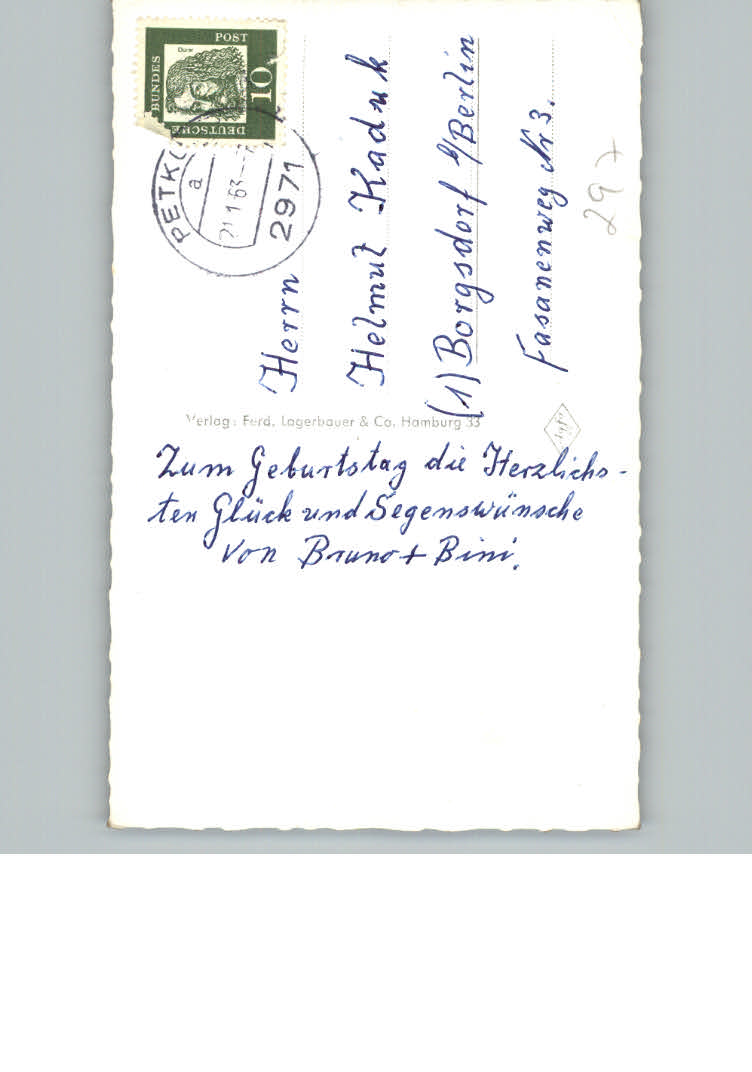 DEUTSCHE
BUNDES
POST
10
Dürer
a
21.1.63
2971
Herrn
Helmut Kaduk
(1) Borgsdorf b/Berlin
Fasanenweg Nr 3.
297
Verlag: Ferd. Lagerbauer & Co. Hamburg 33
Zum Geburtstag die Herzlichs-
ten Glück und Segenswünsche
von Bruno + Bini.